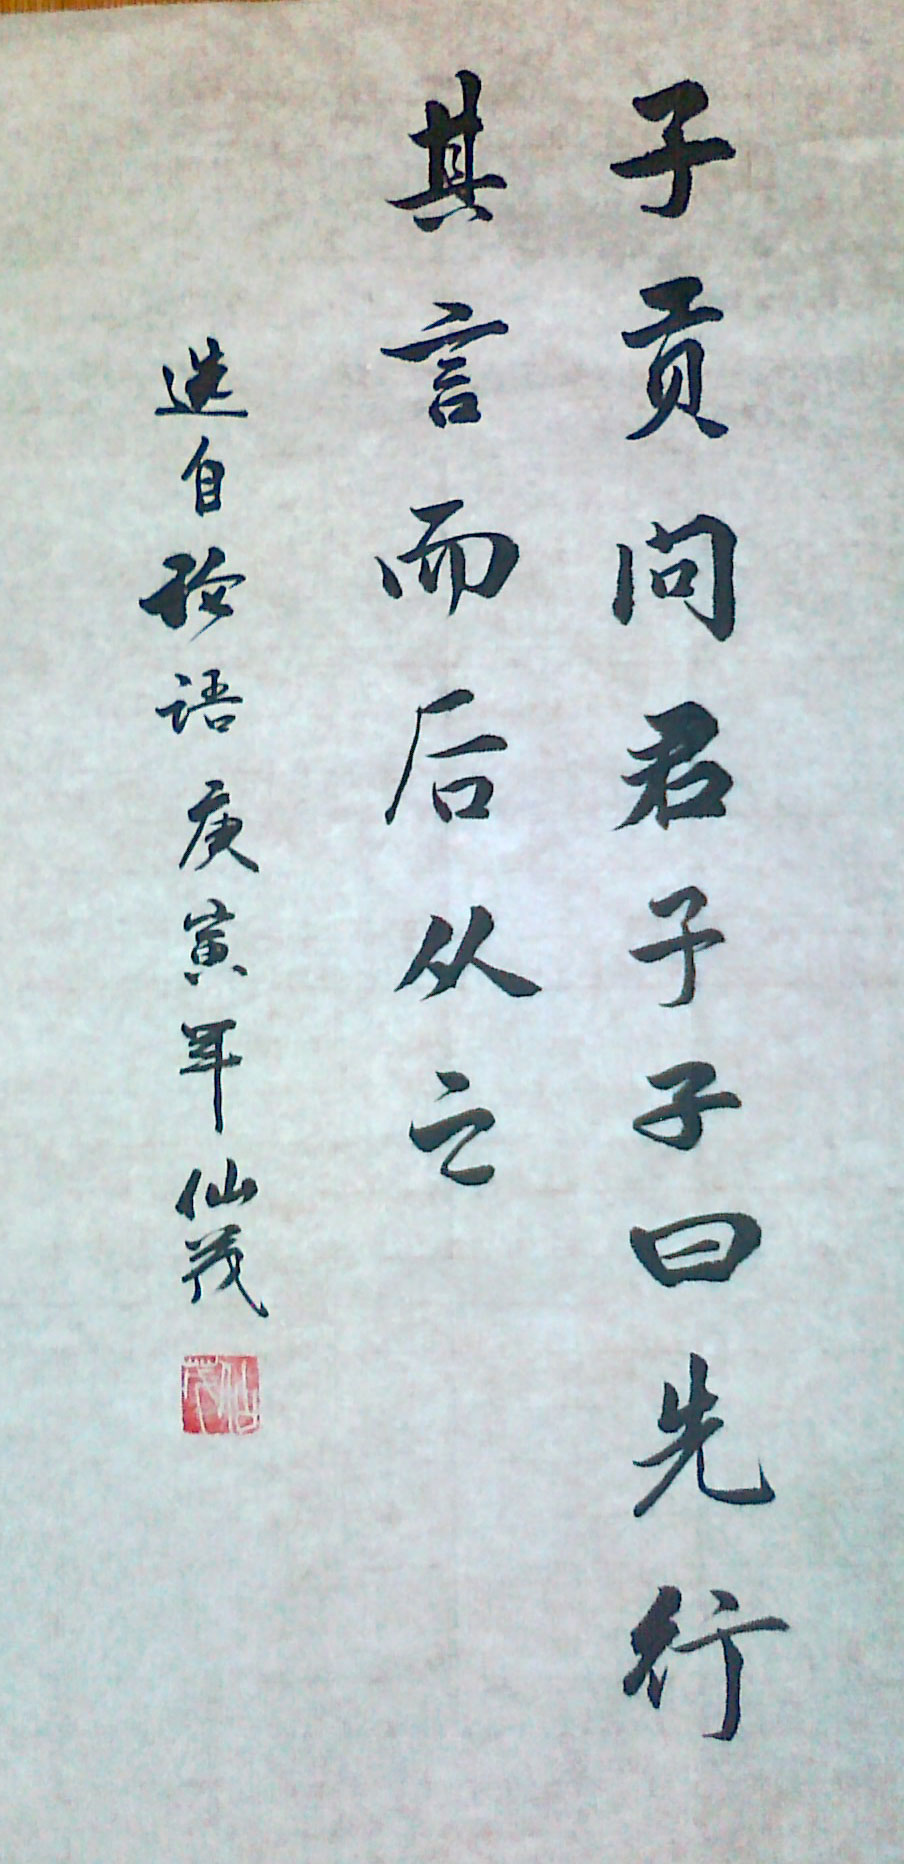 子贡问君子子曰先行
其言而后从之
选自论语庚寅年仙茂
仙茂